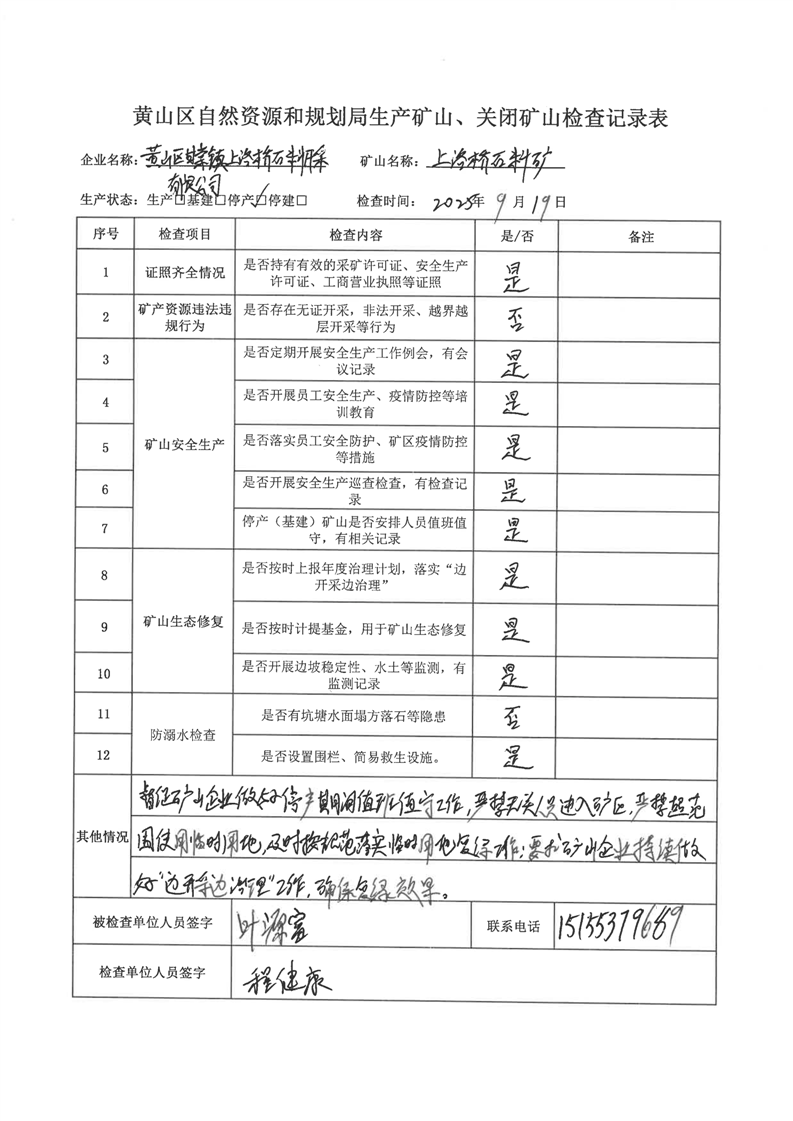 黄山区自然资源和规划局生产矿山、关闭矿山检查记录表
企业名称：黄山区耿城镇上冷桥石料开采 矿山名称：上冷桥石料矿
有限公司
生产状态：生产□基建□停产☑停建□ 检查时间：2025年9月19日
序号 检查项目 检查内容 是/否 备注
1 证照齐全情况 是否持有有效的采矿许可证、安全生产许可证、工商营业执照等证照 是
2 矿产资源违法违规行为 是否存在无证开采，非法开采、越界越层开采等行为 否
3 矿山安全生产 是否定期开展安全生产工作例会，有会议记录 是
4 是否开展员工安全生产、疫情防控等培训教育 是
5 是否落实员工安全防护、矿区疫情防控等措施 是
6 是否开展安全生产巡查检查，有检查记录 是
7 停产（基建）矿山是否安排人员值班值守，有相关记录 是
8 矿山生态修复 是否按时上报年度治理计划，落实“边开采边治理” 是
9 是否按时计提基金，用于矿山生态修复 是
10 是否开展边坡稳定性、水土等监测，有监测记录 是
11 防溺水检查 是否有坑塘水面塌方落石等隐患 否
12 是否设置围栏、简易救生设施。 是
其他情况 督促矿山企业做好停产期间值班值守工作，严禁无关人员进入矿区，严禁超范
围使用临时用地，及时按规范落实临时用地复绿工作；要求矿山企业持续做
好“边开采边治理”工作，确保复绿效果。
被检查单位人员签字 叶源富 联系电话 15155379689
检查单位人员签字 程健康